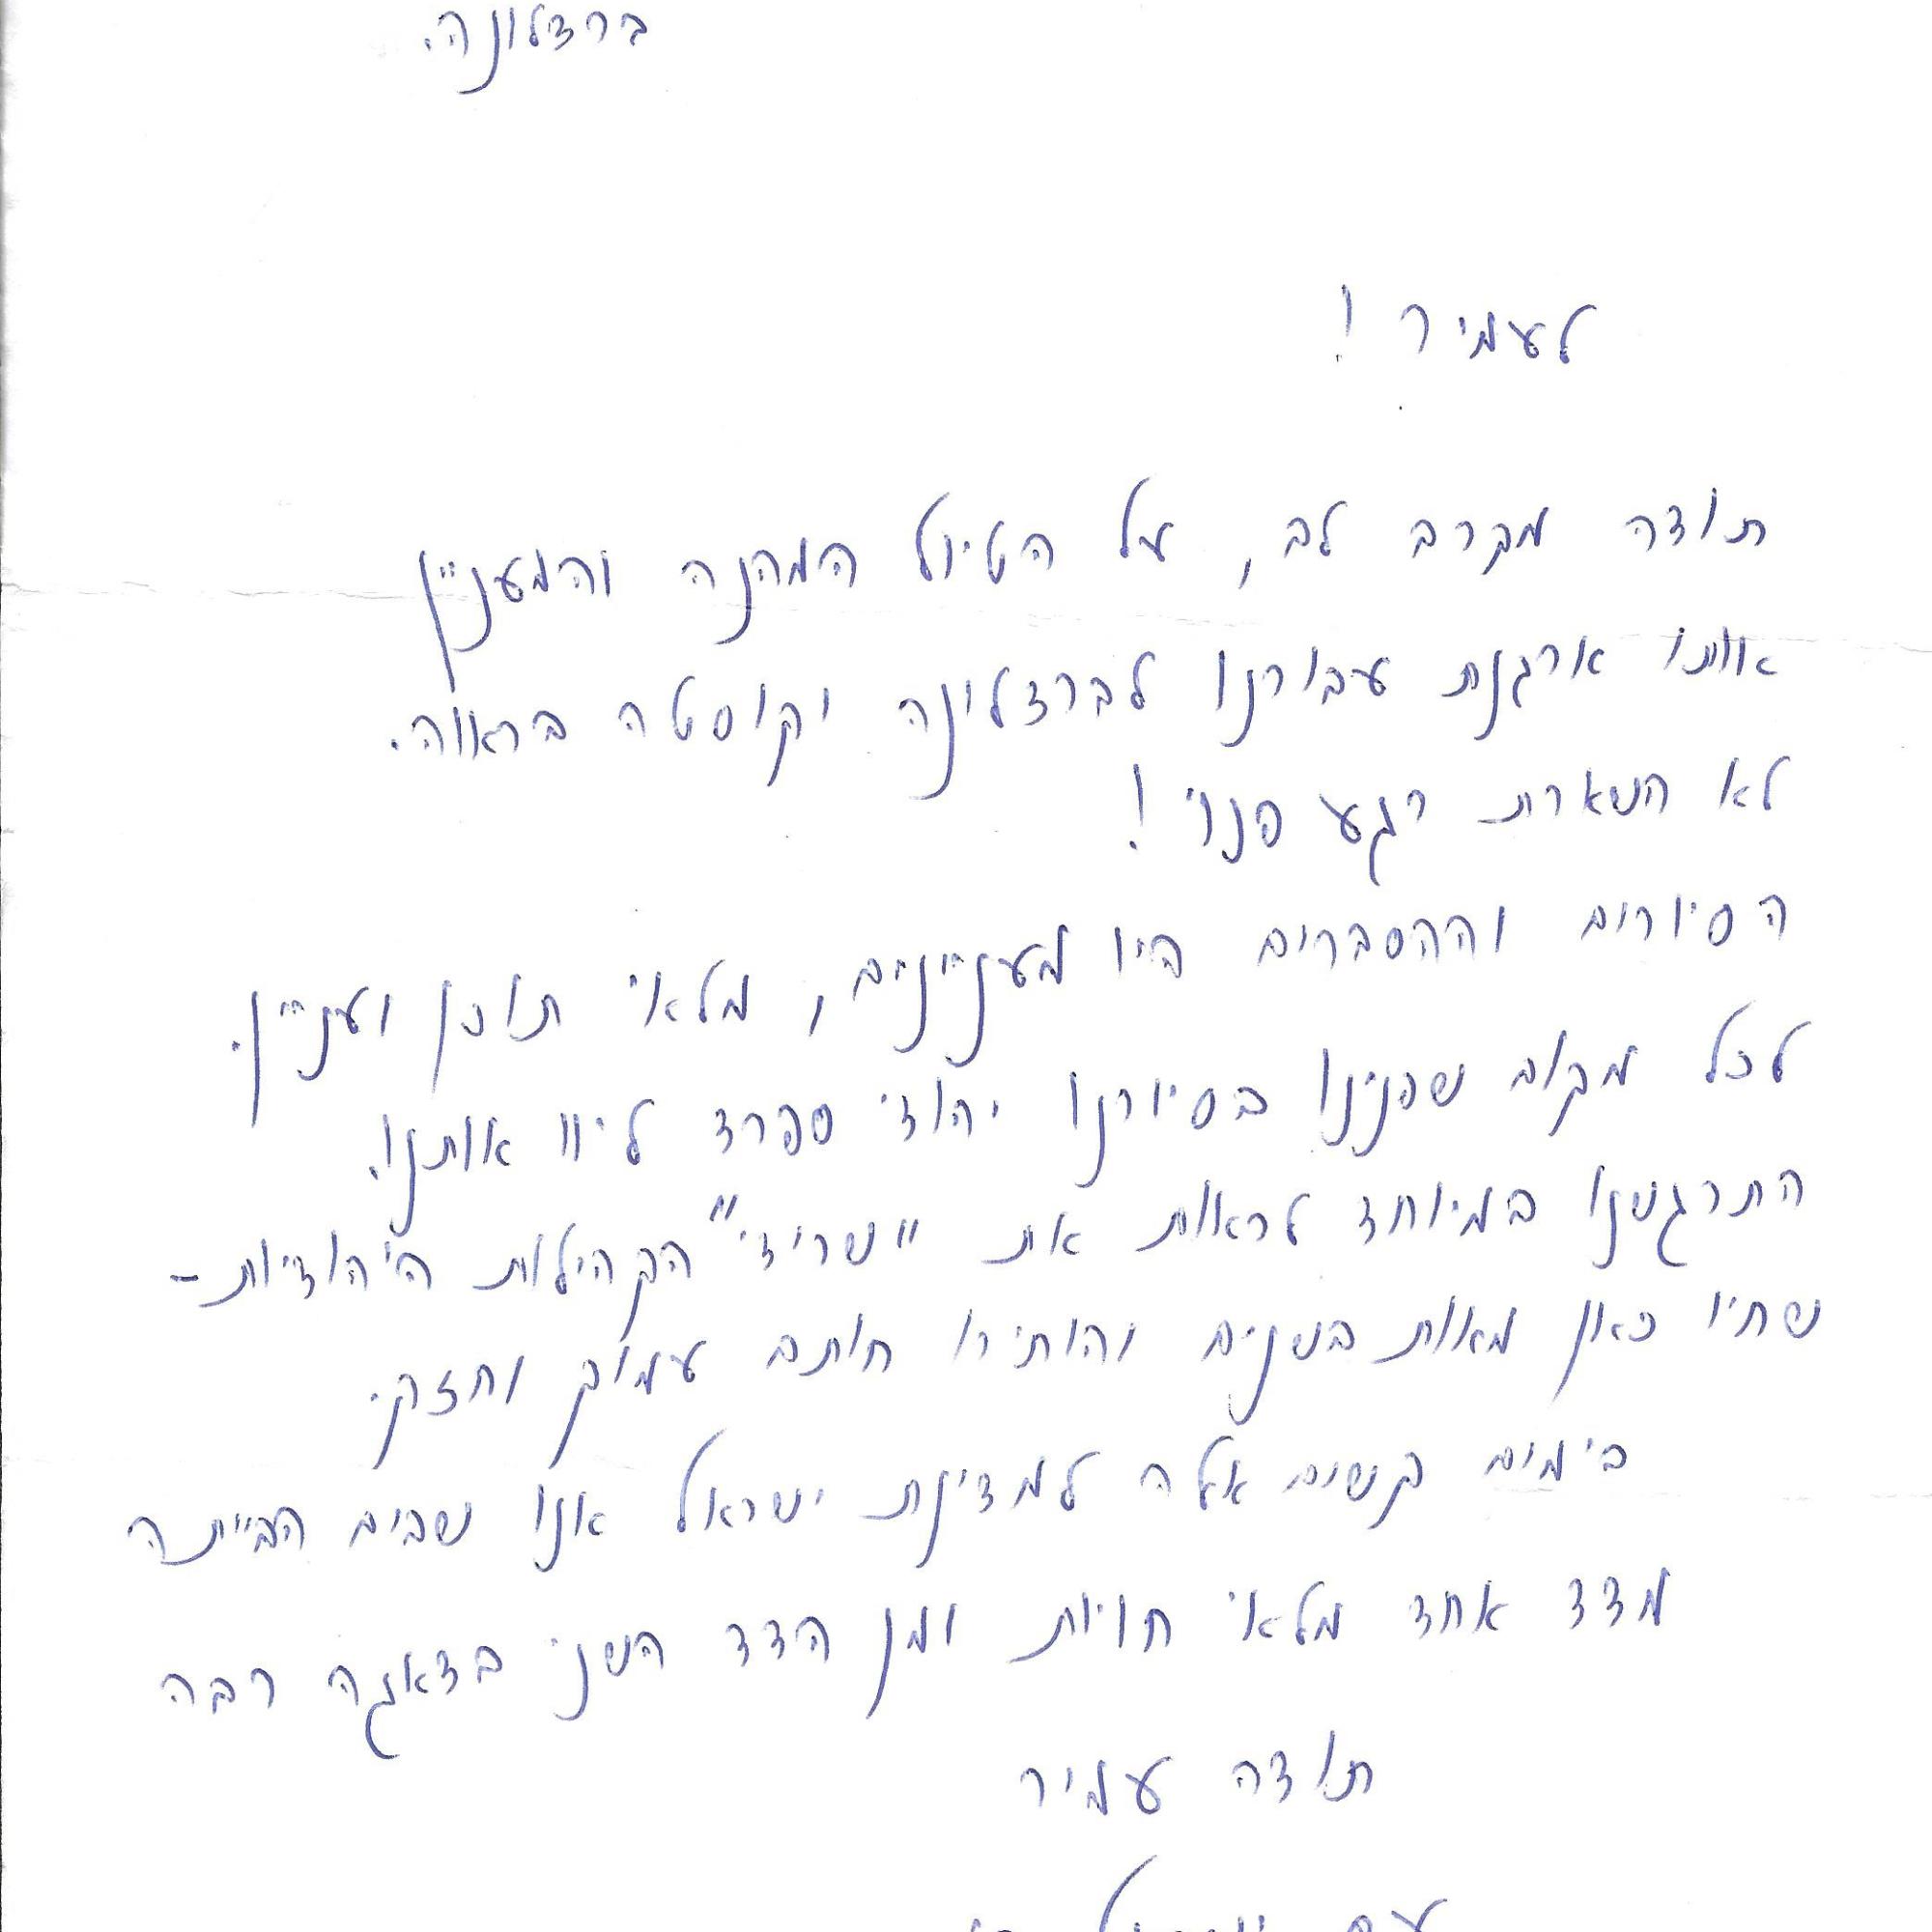 ברצלונה.
לעמיר !
תודה מקרב לב, על הטיול המהנה והמעניין
אותו ארגנת עבורנו לברצלונה וקוסטה בראווה.
לא השארת רגע פנוי !
הסיורים וההסברים היו מעניינים, מלאי תוכן ועניין.
לכל מקום שפנינו בסיורנו יהודי ספרד ליוו אותנו.
התרגשנו במיוחד לראות את "שרידי" הקהילות היהודיות -
שחיו כאן מאות בשנים והותירו חותם עמוק וחזק.
בימים קשים אלה למדינת ישראל אנו שבים הביתה
מצד אחד מלאי חויות ומן הצד השני בדאגה רבה
תודה עמיר
עם ישראל חי